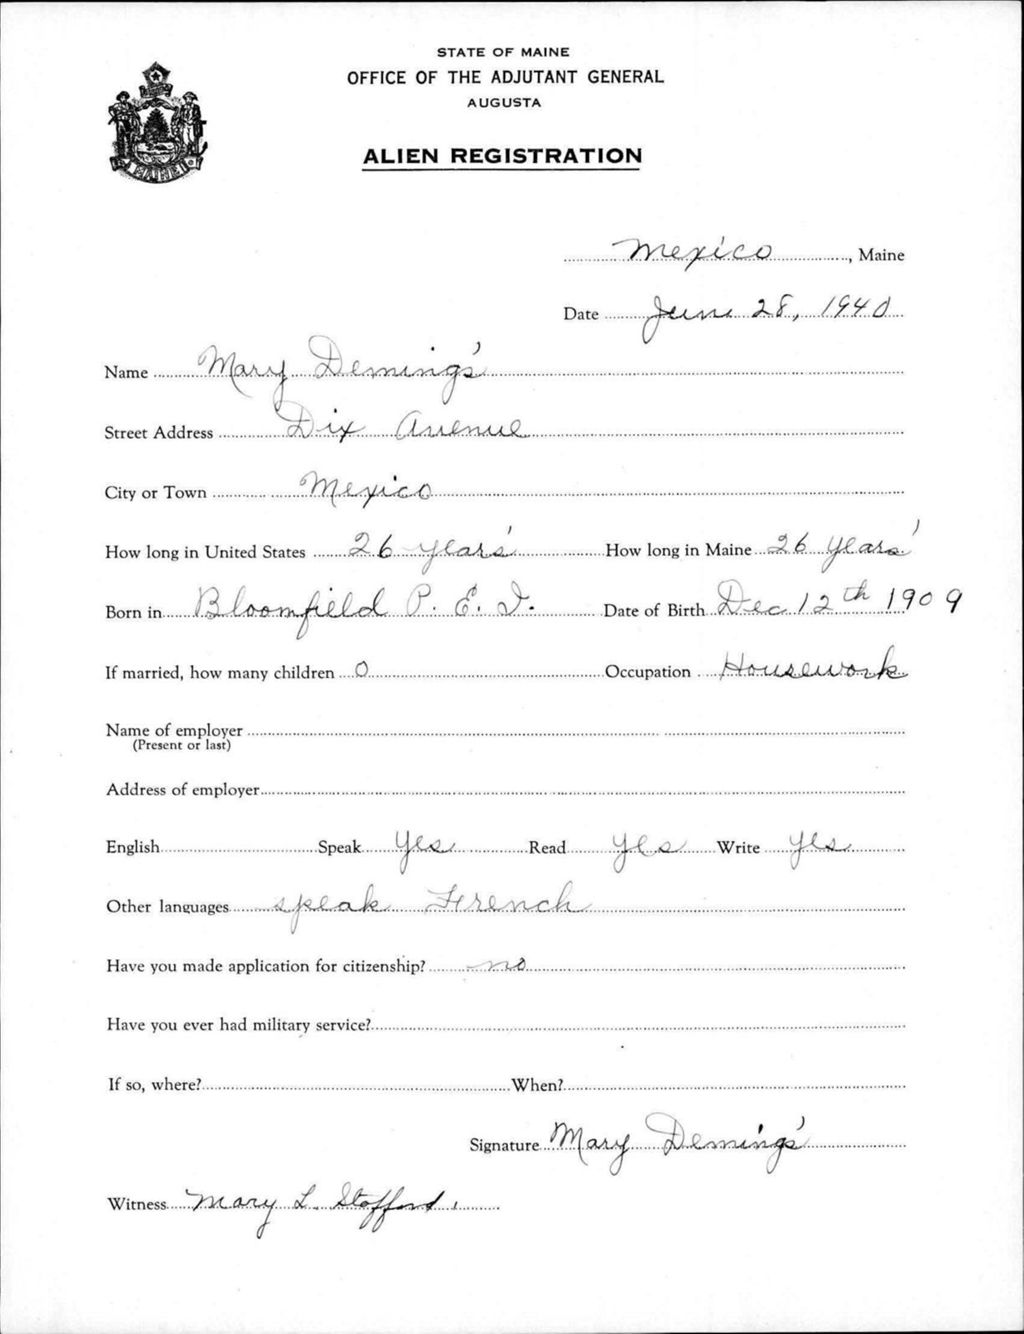 STATE OF MAINE
OFFICE OF THE ADJUTANT GENERAL
AUGUSTA
ALIEN REGISTRATION
MAINE
Mexico, Maine
Date June 28, 1940
Name Mary Demings'
Street Address Dix Avenue
City or Town Mexico
How long in United States 26 years' How long in Maine 26 years'
Born in Bloomfield P. E. I. Date of Birth Dec 12th 1909
If married, how many children 0 Occupation Housework
Name of employer
(Present or last)
Address of employer
English Speak Yes Read Yes Write Yes
Other languages speak French
Have you made application for citizenship? no
Have you ever had military service?
If so, where? When?
Signature Mary Demings'
Witness Mary L. Stafford.